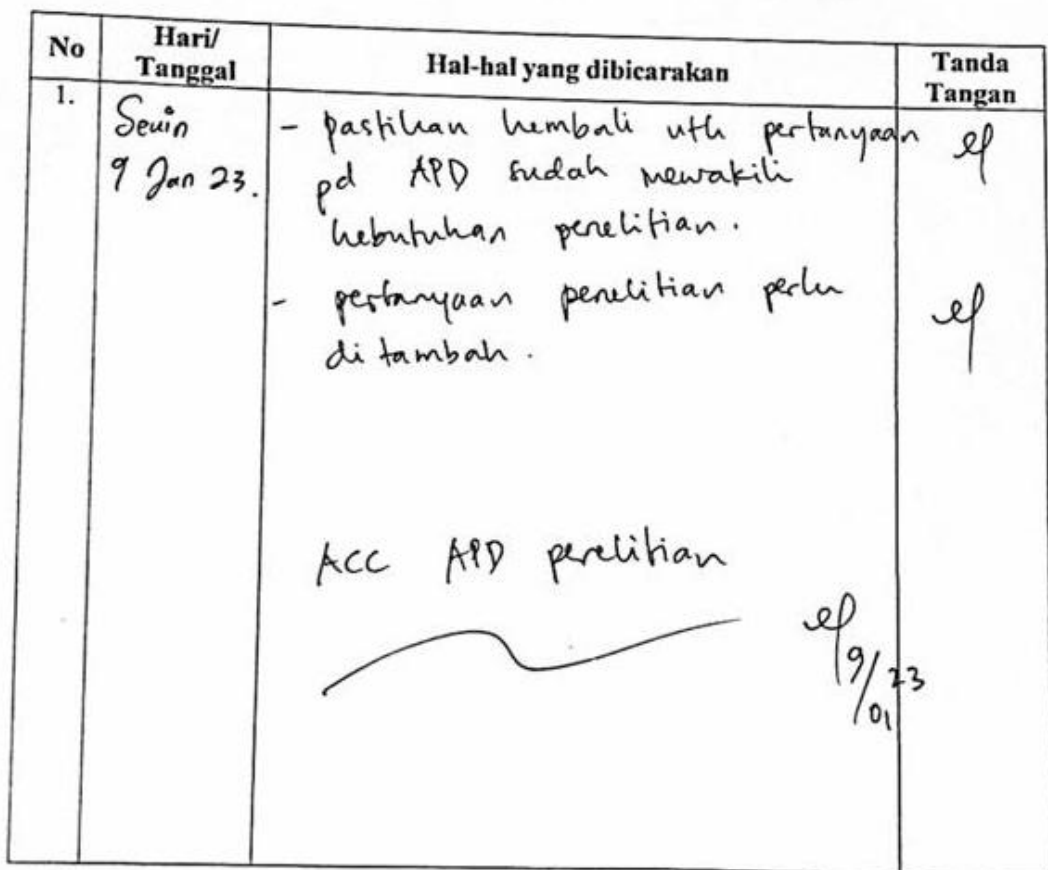 No Hari/ Tanggal Hal-hal yang dibicarakan Tanda Tangan
1. Senin - pastikan kembali utk pertanyaan
9 Jan 23. pd APD sudah mewakili
kebutuhan penelitian.
- pertanyaan penelitian perlu
di tambah.
ACC APD penelitian
9/01/23